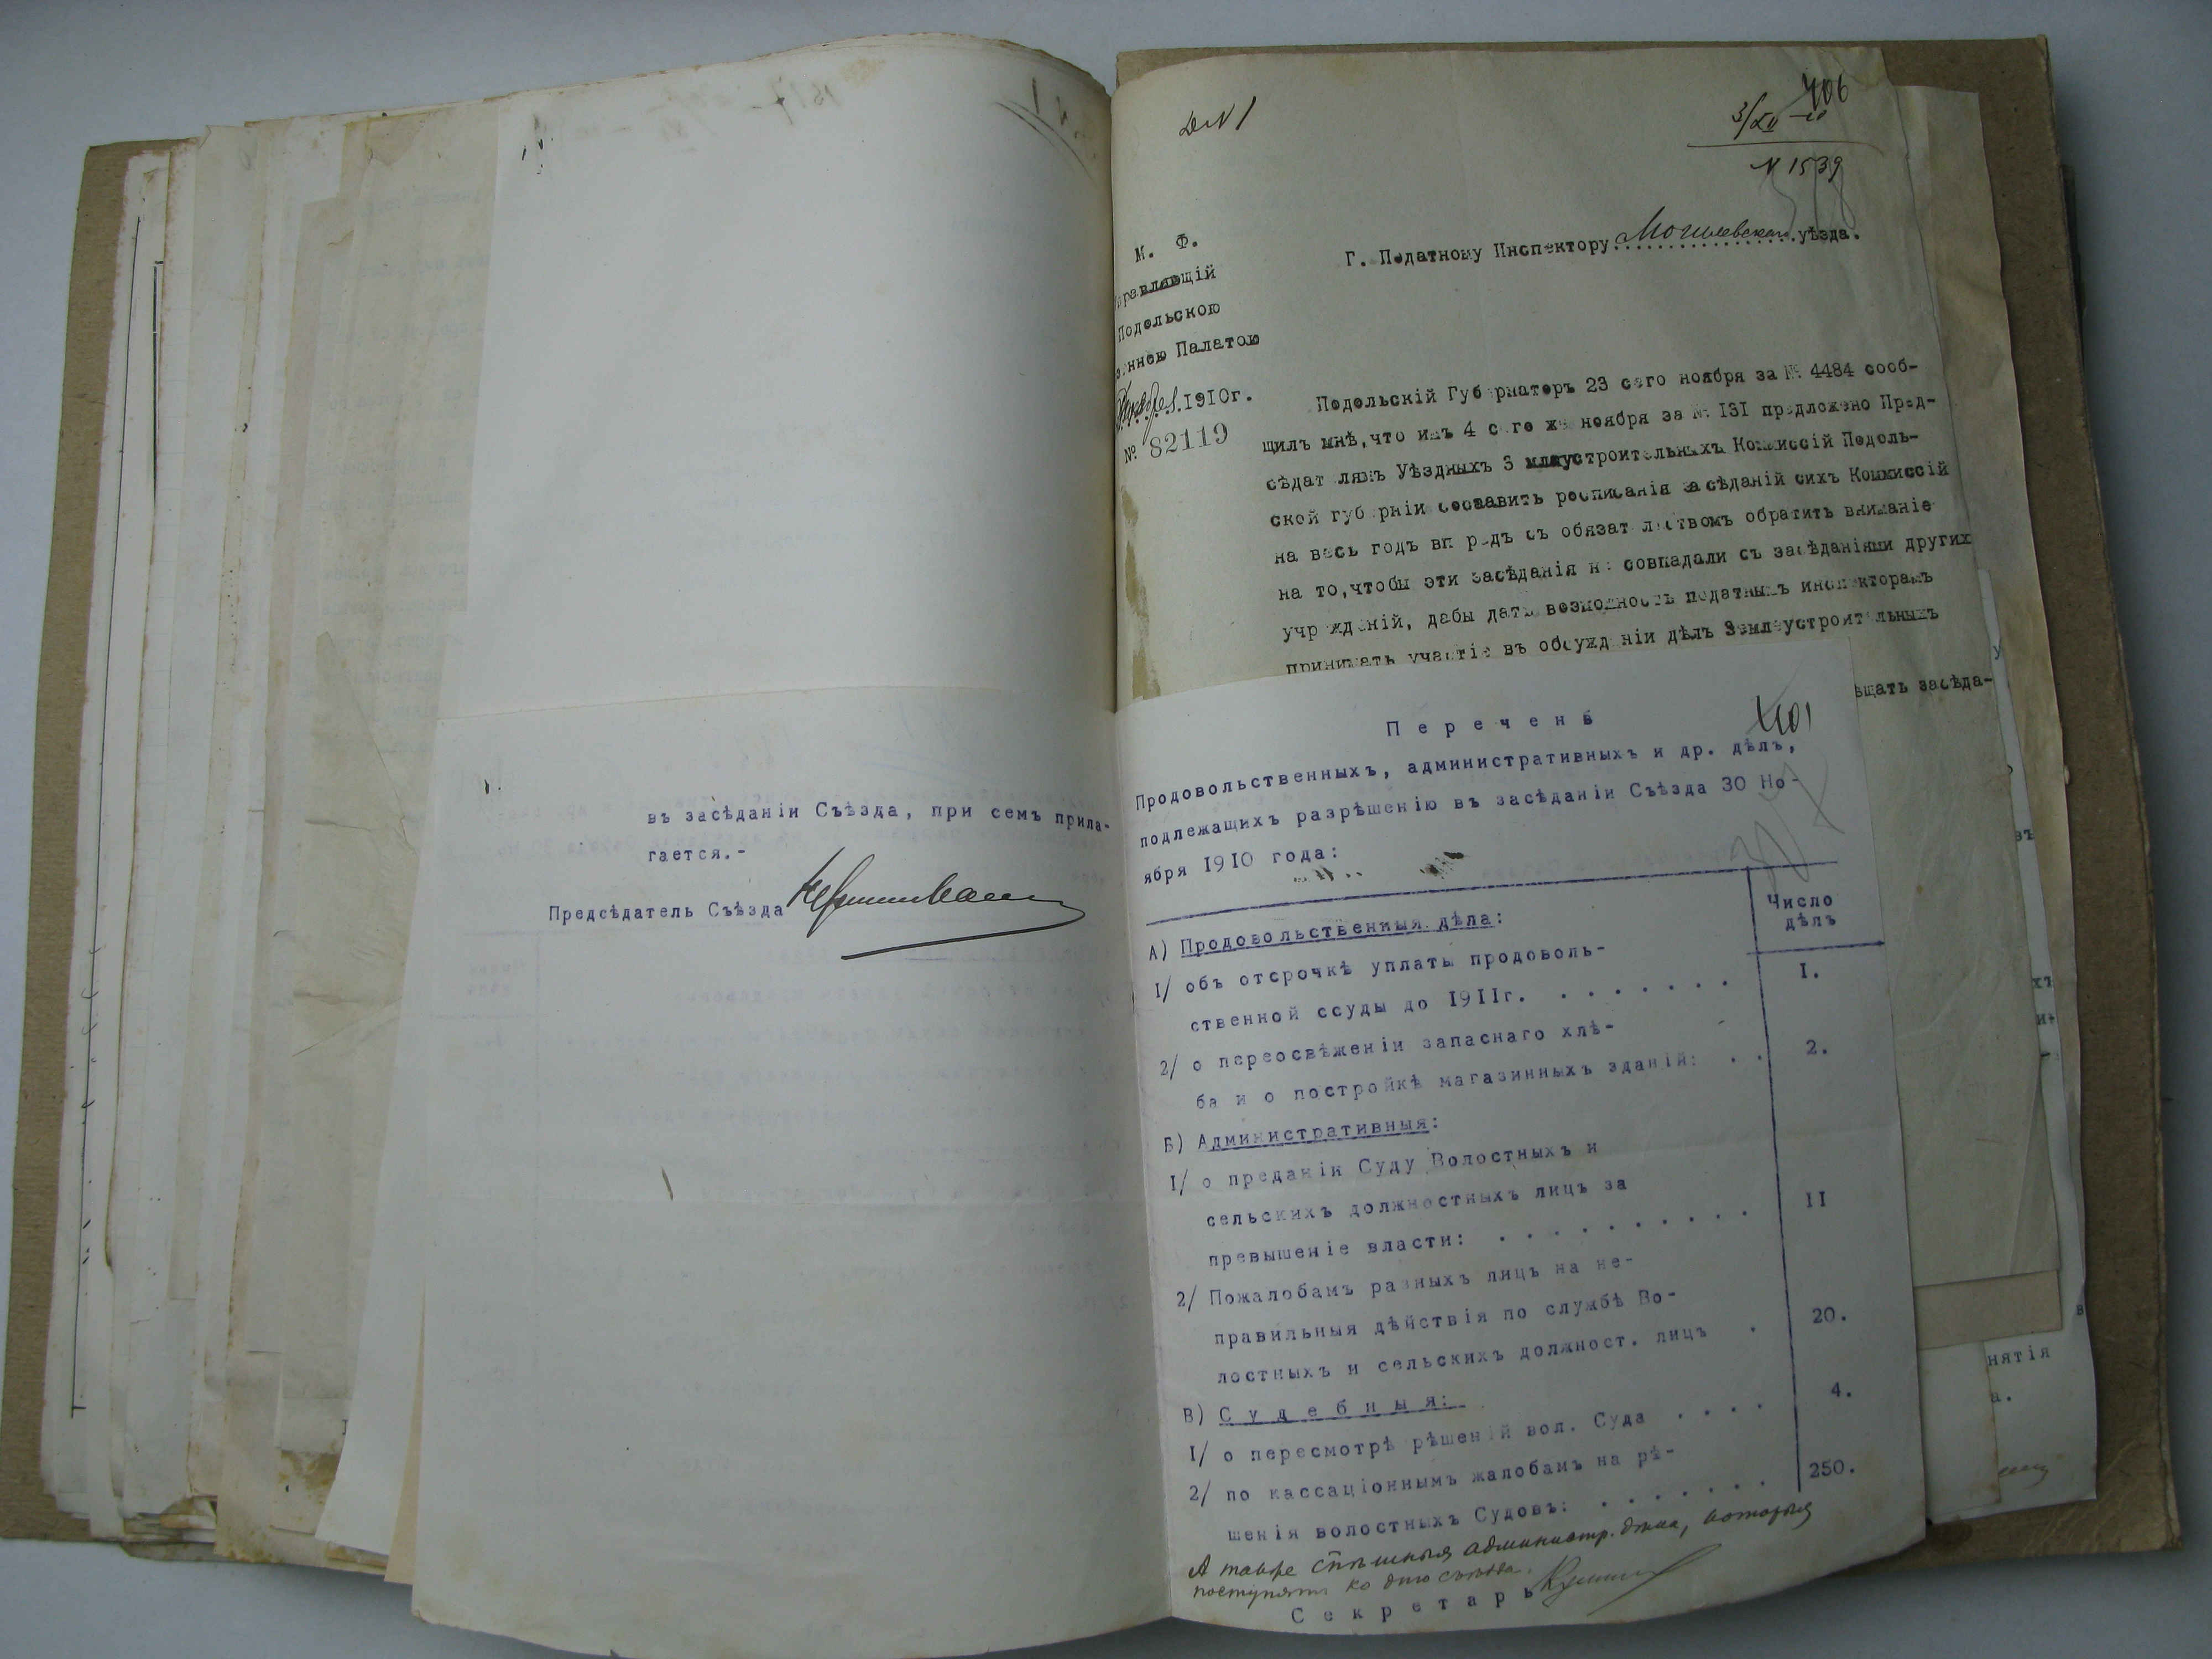 въ засѣданіи Съѣзда, при семъ прила-
гается.-
Предсѣдатель Съѣзда
406
3/XII
N 1539
М. Ф.
Управляющій
Подольскою
Казенною Палатою
1910г.
№ 82119
Г. Податному Инспектору Могилевскаго уѣзда.
Подольскій Губернаторъ 23 сего ноября за № 4484 сооб-
щилъ мнѣ,что имъ 4 сего же ноября за № 131 предложено Пред-
сѣдателямъ Уѣздныхъ Землеустроительныхъ Коммиссій Подоль-
ской губерніи составить росписанія засѣданій сихъ Коммиссій
на весь годъ впередъ съ обязательствомъ обратить вниманіе
на то,чтобы эти засѣданія не совпадали съ засѣданіями другихъ
учрежденій, дабы дать возможность податнымъ инспекторамъ
принимать участіе въ обсужденіи дѣлъ Землеустроительныхъ
ѣщать засѣда-
401
Перечень
Продовольственныхъ, административныхъ и др. дѣлъ,
подлежащихъ разрѣшенію въ засѣданіи Съѣзда 30 Но-
ября 1910 года:
Число
дѣлъ
А) Продовольственныя дѣла:
I/ объ отсрочкѣ уплаты продоволь-
ственной ссуды до 1911г. . . . . . . . I.
2/ о переосвѣженіи запаснаго хлѣ-
ба и о постройкѣ магазинныхъ зданій: . . 2.
Б) Административныя:
I/ о преданіи Суду Волостныхъ и
сельскихъ должностныхъ лицъ за
превышеніе власти: . . . . . . . . . . II
2/ Пожалобамъ разныхъ лицъ на не-
правильныя дѣйствія по службѣ Во-
лостныхъ и сельскихъ должност. лицъ . 20.
В) Судебныя:
I/ о пересмотрѣ рѣшеній вол. Суда . . . . 4.
2/ по кассаціоннымъ жалобамъ на рѣ-
шенія волостныхъ Судовъ: . . . . . . . 250.
А также спѣшныя администр. дѣла, которыя
поступятъ ко дню съѣзда.
Секретарь
нятія
а.